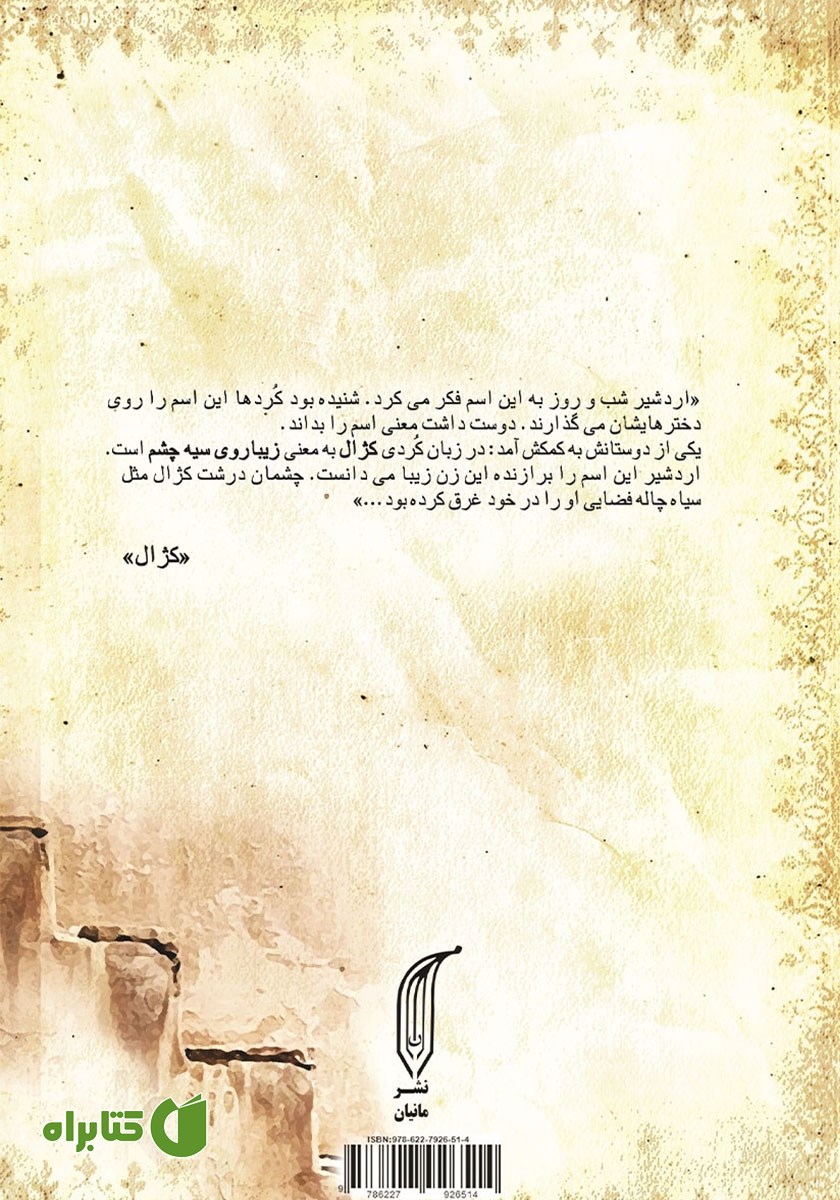 «اردشیر شب و روز به این اسم فکر می کرد. شنیده بود کُردها این اسم را روی
دخترهایشان می گذارند. دوست داشت معنی اسم را بداند.
یکی از دوستانش به کمکش آمد: در زبان کُردی کژال به معنی زیباروی سیه چشم است.
اردشیر این اسم را برازنده این زن زیبا می دانست. چشمان درشت کژال مثل
سیاه چاله فضایی او را در خود غرق کرده بود...»
«کژال»
ن
نشر
مانیان
کتابراه
ISBN:978-622-7926-51-4
9 786227 926514